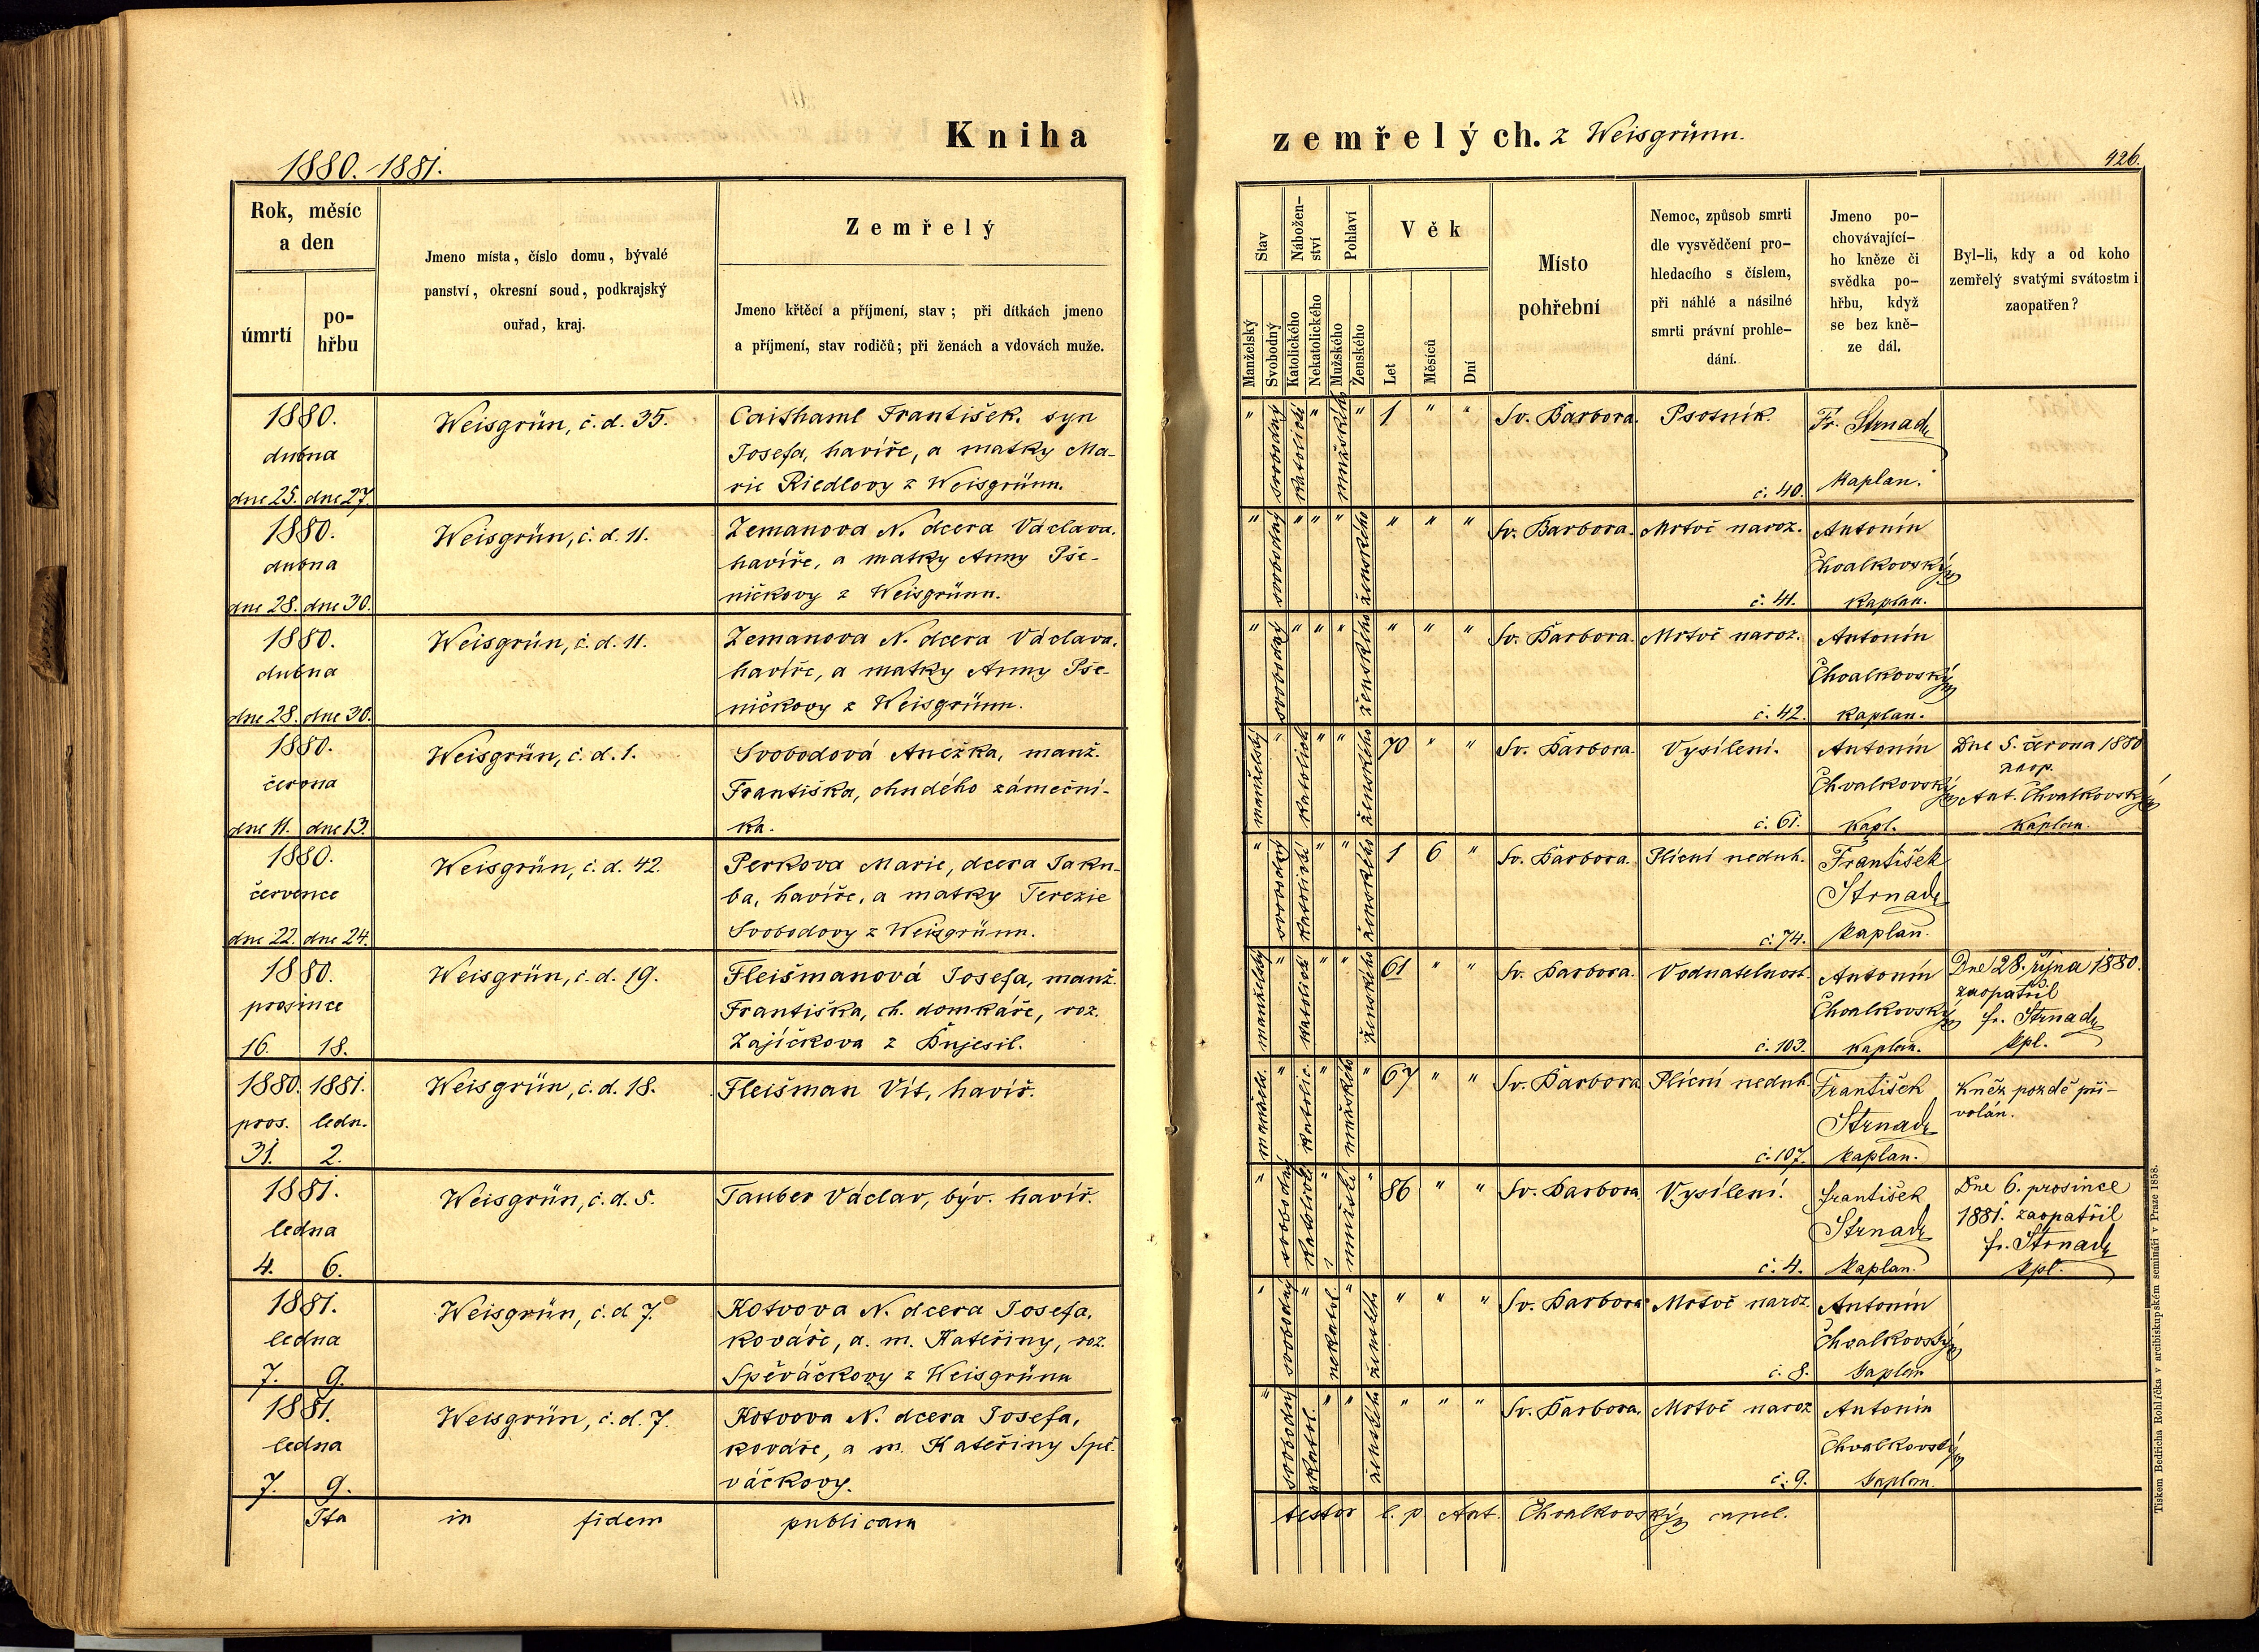 Kniha
1880.-1881.
Rok, měsíc
a den
úmrtí
po-
hřbu
Jmeno místa, číslo domu, bývalé
panství, okresní soud, podkrajský
ouřad, kraj.
Zemřelý
Jmeno křtěcí a příjmení, stav; při dítkách jmeno
a příjmení, stav rodičů; při ženách a vdovách muže.
1880.
dubna
dne 25. dne 27.
Weisgrün, č. d. 35.
Caithaml František, syn
Josefa, havíře, a matky Ma-
rie Riedlovy z Weisgrünn.
1880.
dubna
dne 28. dne 30.
Weisgrün, č. d. 11.
Zemanova N. dcera Václava,
havíře, a matky Anny Pše-
ničkovy z Weisgrünn.
1880.
dubna
dne 28. dne 30.
Weisgrün, č. d. 11.
Zemanova N. dcera Václava,
havíře, a matky Anny Pše-
ničkovy z Weisgrünn.
1880.
června
dne 11. dne 13.
Weisgrün, č. d. 1.
Svobodová Anežka, manž.
Františka, chudého zámeční-
ka.
1880.
července
dne 22. dne 24.
Weisgrün, č. d. 42.
Perkova Marie, dcera Jaku-
ba, havíře, a matky Terezie
Svobodovy z Weisgrünn.
1880.
prosince
16. 18.
Weisgrün, č. d. 19.
Fleišmanová Josefa, manž.
Františka, ch. domkáře, roz.
Zajíčkova z Bujesil.
1880. 1881.
pros. ledn.
31. 2.
Weisgrün, č. d. 18.
Fleišman Vít, havíř.
1881.
ledna
4. 6.
Weisgrün, č. d. 5.
Tauber Václav, býv. havíř.
1881.
ledna
7. 9.
Weisgrün, č. d 7.
Kotvova N. dcera Josefa,
kováře, a. m. Kateřiny, roz.
Spěváčkovy z Weisgrünn
1881.
ledna
7. 9.
Weisgrün, č. d. 7.
Kotvova N. dcera Josefa,
kováře, a m. Kateřiny Spě-
váčkovy.
Ita in fidem publicam
zemřelých. z Weisgrünn.
426.
Stav
Nábožen-
ství
Pohlaví
Věk
Manželský
Svobodný
Katolického
Nekatolického
Mužského
Ženského
Let
Měsíců
Dní
Místo
pohřební
Nemoc, způsob smrti
dle vysvědčení pro-
hledacího s číslem,
při náhlé a násilné
smrti právní prohle-
dání.
Jmeno po-
chovávající-
ho kněze či
svědka po-
hřbu, když
se bez kně-
ze dál.
Byl-li, kdy a od koho
zemřelý svatými svátostmi
zaopatřen?
" svobodný katolické " mužského " 1 " " Sv. Barbora. Psotník. Fr. Strnad
č. 40. kaplan.
" svobodný " " " ženského " " " Sv. Barbora. Mrtvě naroz. Antonín
Chvalkovský
č. 41. kaplan.
" svobodný " " " ženského " " " Sv. Barbora. Mrtvě naroz. Antonín
Chvalkovský
č. 42. kaplan.
manželský " katolické " " ženského 70 " " Sv. Barbora. Vysílení. Antonín
Chvalkovský
č. 61. Kapl.
Dne 5. června 1880
zaop.
Ant. Chvalkovský
kaplan.
" svobodný katolické " " ženského 1 6 " Sv. Barbora. Plícní neduh. František
Strnad
č. 74. kaplan.
manželský " katolické " " ženského 61 " " Sv. Barbora. Vodnatelnost. Antonín
Chvalkovský
č. 103. kaplan.
Dne 28. října 1880.
zaopatřil
fr. Strnad
kpl.
manžels. " katolic. " mužského " 67 " " Sv. Barbora Plícní neduh. František
Strnad
č. 107. kaplan.
Kněz pozdě při-
volán.
" svobodný katolické " mužské " 86 " " Sv. Barbora Vysílení. František
Strnad
č. 4. kaplan.
Dne 6. prosince
1881. zaopatřil
fr. Strnad
kpl.
" svobodný " nekatol. " ženského " " " Sv. Barbora Mrtvě naroz. Antonín
Chvalkovský
č. 8. kaplan
" svobodný katol. " " ženského " " " Sv. Barbora. Mrtvě naroz Antonín
Chvalkovský
č. 9. kaplan.
testor l. p Ant. Chvalkovský capel.
Tiskem Bedřicha Rohlíčka v arcibiskupském semináři v Praze 1858.